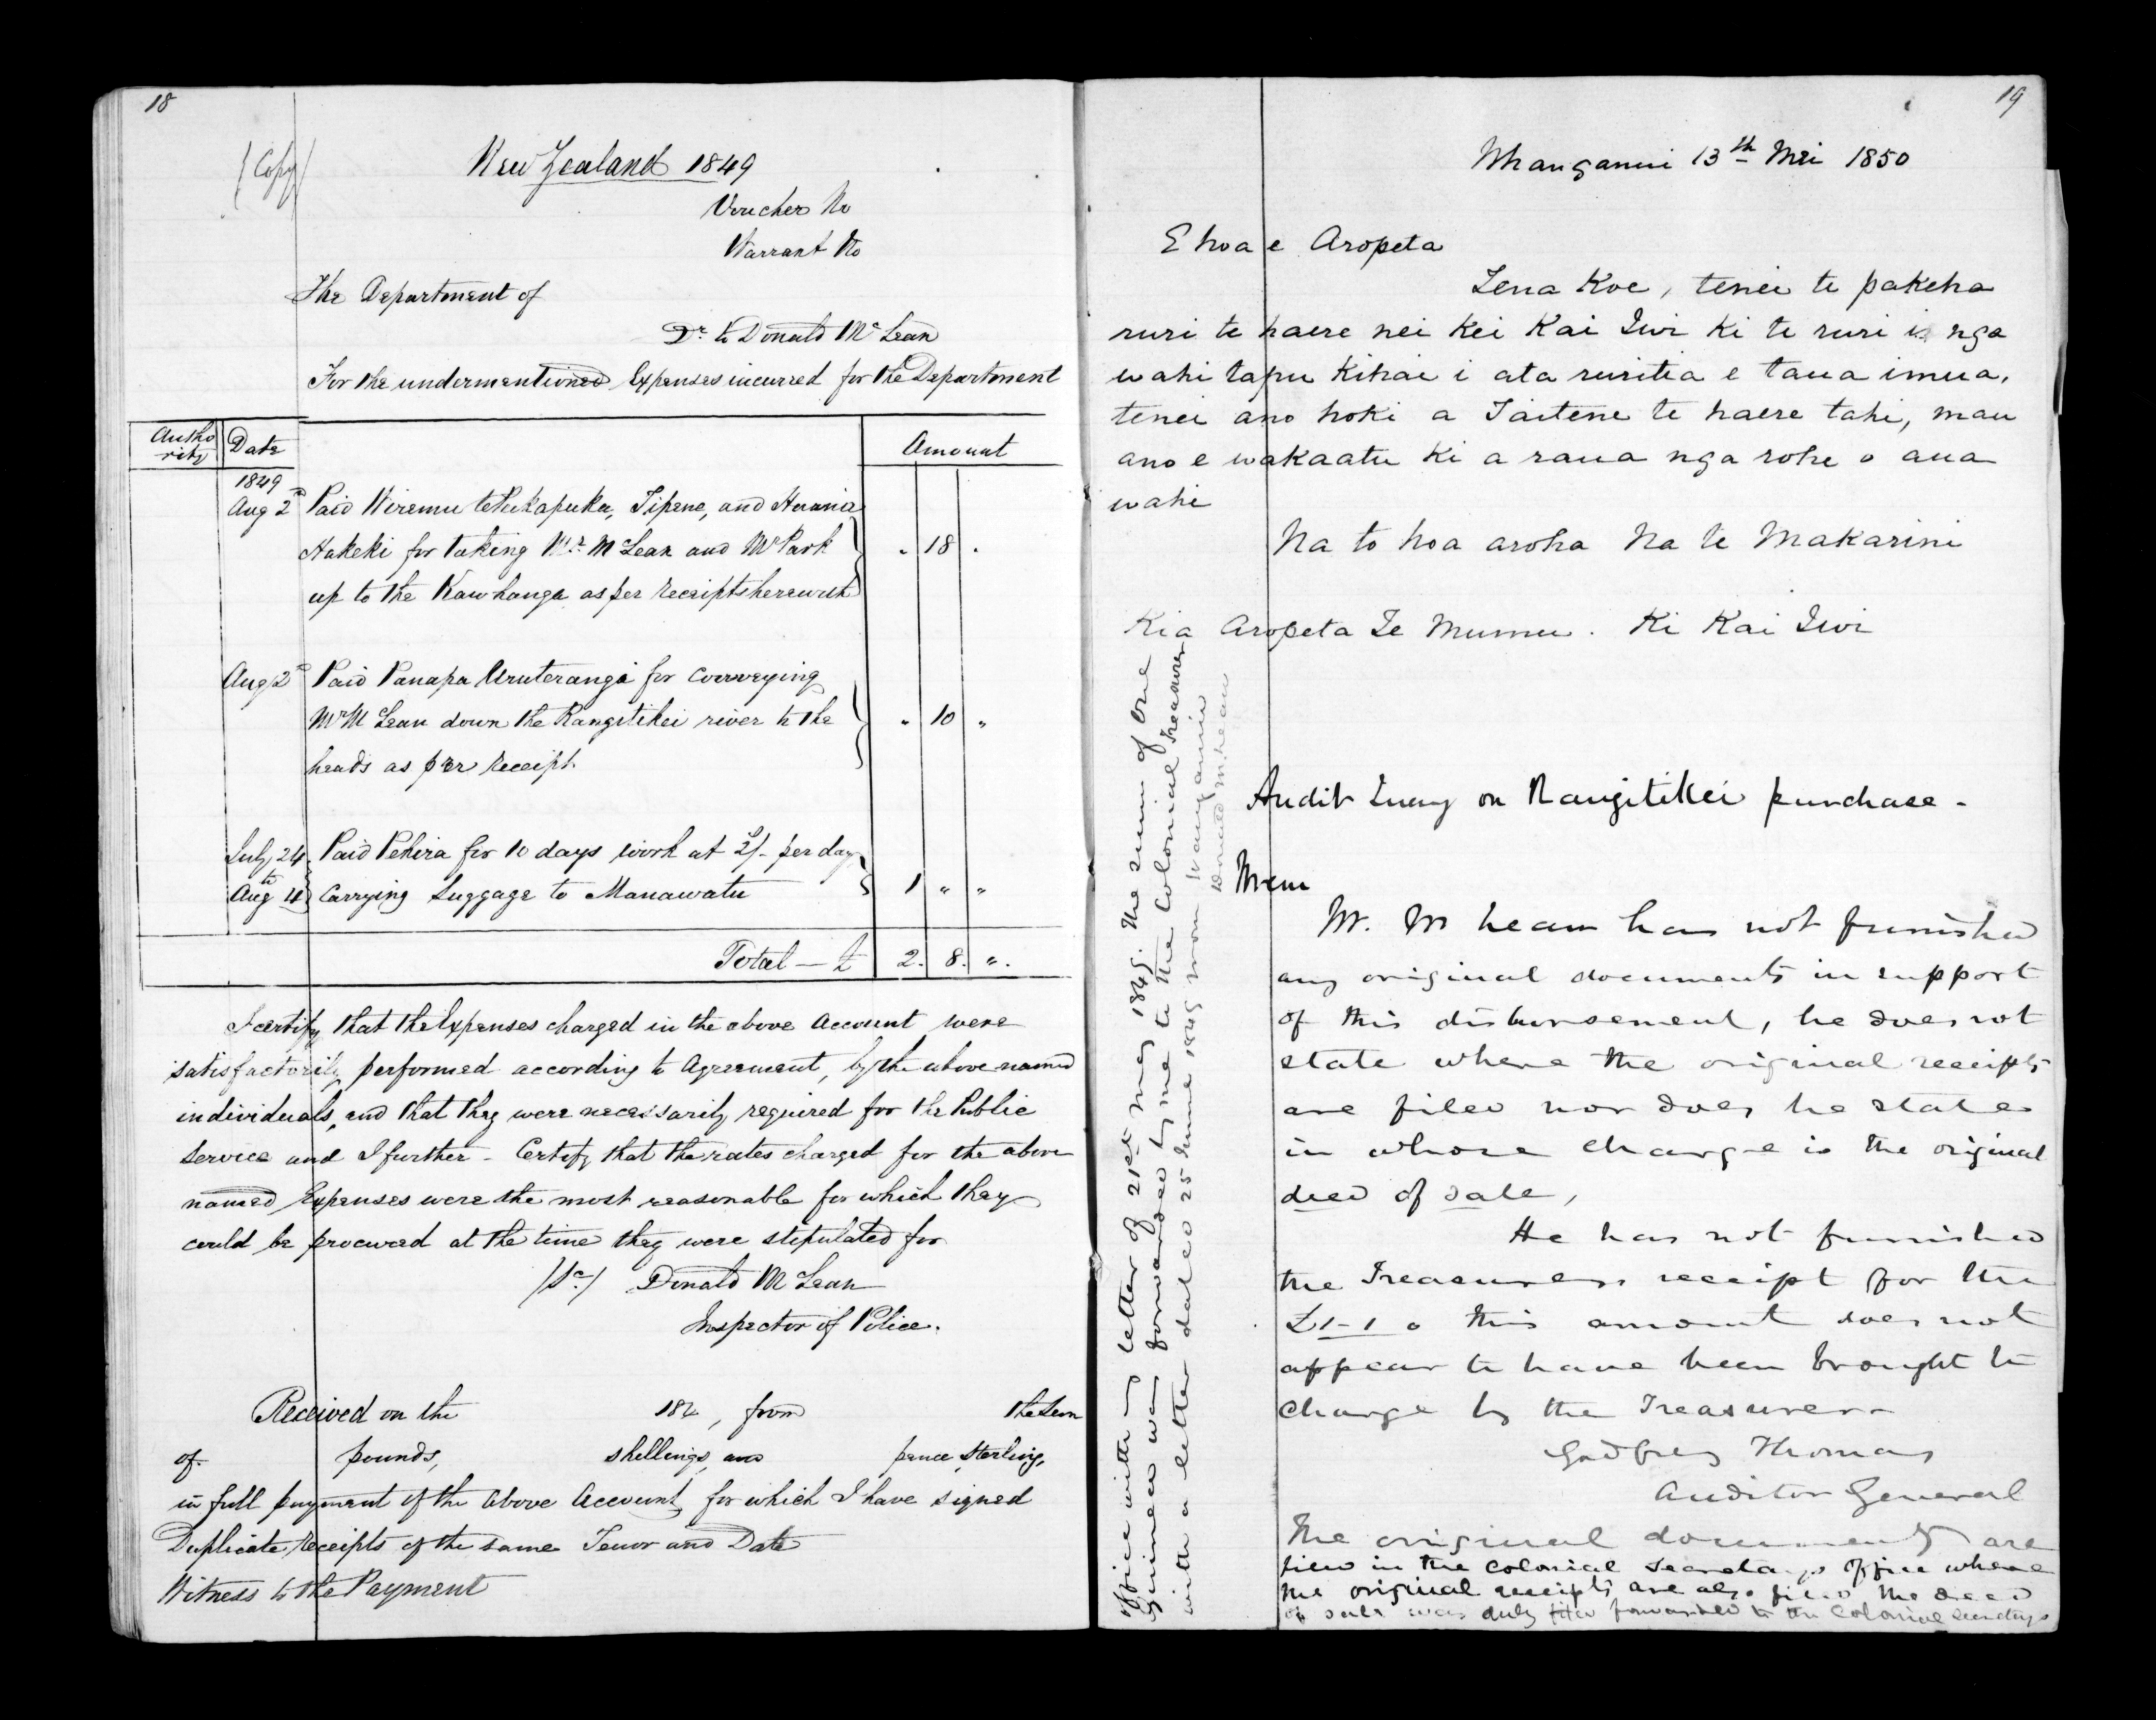 18
(Copy)
New Zealand 1849
Voucher No
Warrant No
The Department of
Dr. to Donald McLean
For the undermentioned Expenses incurred for the Department
Autho
rity
Date
Amount
1849
Aug 2d Paid Wiremu te Pukapuka, Tipene, and Huania
Hakeke for taking Mr. McLean and Mr Park
up to the Kawhanga as per receipts herewith
" 18 "
Aug 2d Paid Panapa Uruterangi for conveying
Mr McLean down the Rangitikei river to the
heads as per receipt.
" 10 "
July 24 Paid Pehira for 10 days work at 2/- per day
to
Aug 4 Carrying Luggage to Manawatu
1 " "
Total — £ 2. 8. ".
I certify that the Expenses charged in the above Account were
satisfactorily performed according to Agreement, by the above named
individuals, and that they were necessarily required for the Public
Service and I further - Certify that the rates charged for the above
named Expenses were the most reasonable for which they
could be procured at the time they were stipulated for
Donald McLean
Inspector of Police.
Received on the 184 , from the Sum
of pounds, shillings, and pence Sterling,
in full payment of the above Account, for which I have signed
Duplicate receipts of the same Tenor and Date
Witness to the Payment
19
Whanganui 13th Mei 1850
E hoa e Aropeta
Tena Koe, tenei te pakeha
ruri te haere nei kei Kai Iwi ki te ruri i nga
wahi tapu kihai i ata ruritia e taua imua,
tenei ano hoki a Taitene te haere tahi, mau
ano e wakaatu ki a raua nga rohe o aua
wahi
Na to hoa aroha Na te Makarini
Kia Aropeta Te Mumu. Ki Kai Iwi
Audit Query on Rangitikei purchase -
Mem
Mr. McLean has not furnished
any original documents in support
of this disbursement, he does not
state where the original receipts
are filed nor does he state
in whose charge is the original
deed of sale,
He has not furnished
the Treasurers receipt for the
£1-1 o this amount does not
appear to have been brought to
charge by the Treasurer
Godfrey Thomas
Auditor General
The original documents are
filed in the Colonial Secretary's Office where
the original receipts are also filed the deed
of sale was duly filed forwarded to the Colonial Secretarys
office with my letter of 21st May 1849. The sum of one
Guinea was forwarded by me to the Colonial Treasurer
with a letter dated 25 June 1849 from Wanganui
Donald McLean